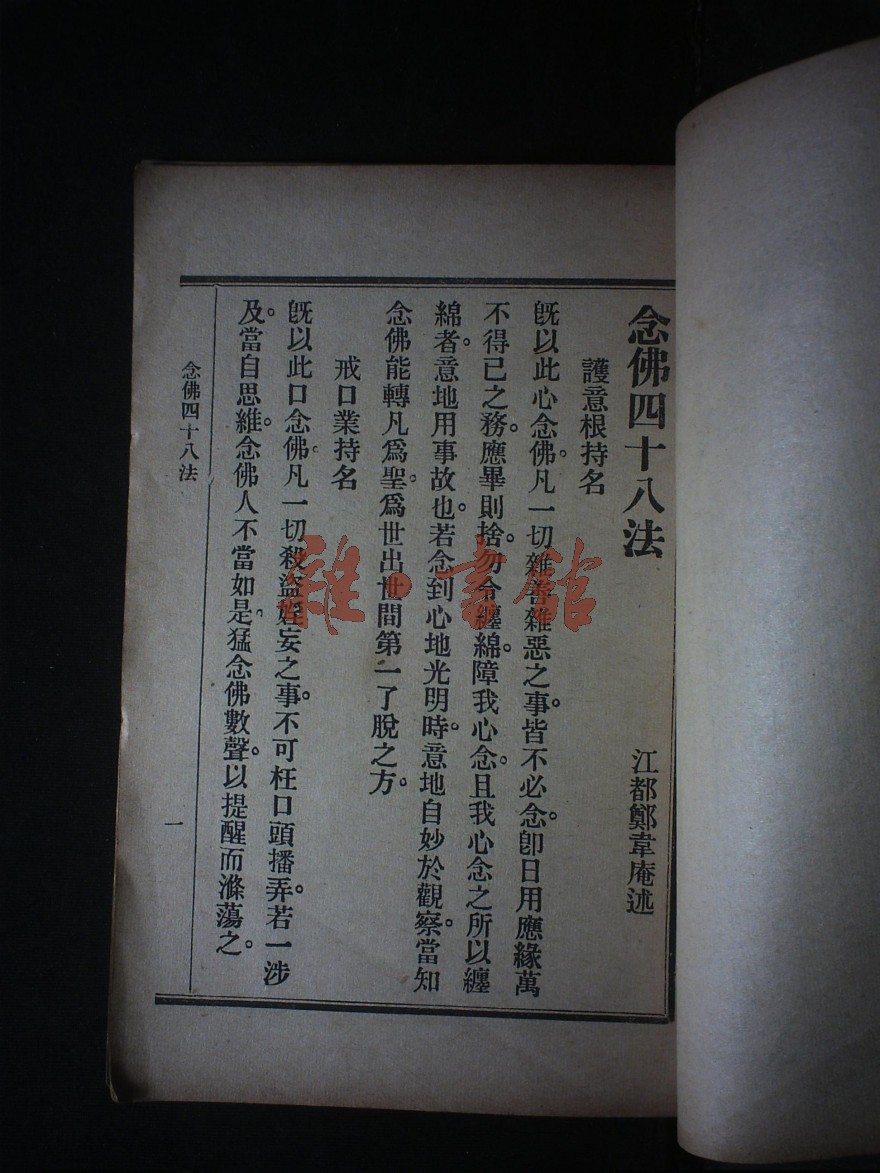 念佛四十八法
江都鄭韋庵述
護意根持名
旣以此心念佛。凡一切雜善雜惡之事。皆不必念。卽日用應緣萬
不得已之務。應畢則捨。勿令纏綿。障我心念。且我心念之所以纏
綿者。意地用事故也。若念到心地光明時。意地自妙於觀察。當知
念佛能轉凡爲聖。爲世出世間第一了脫之方。
戒口業持名
旣以此口念佛。凡一切殺盜婬妄之事。不可枉口頭播弄。若一涉
及。當自思維。念佛人不當如是。猛念佛數聲。以提醒而滌蕩之。
念佛四十八法
一
雜·書館